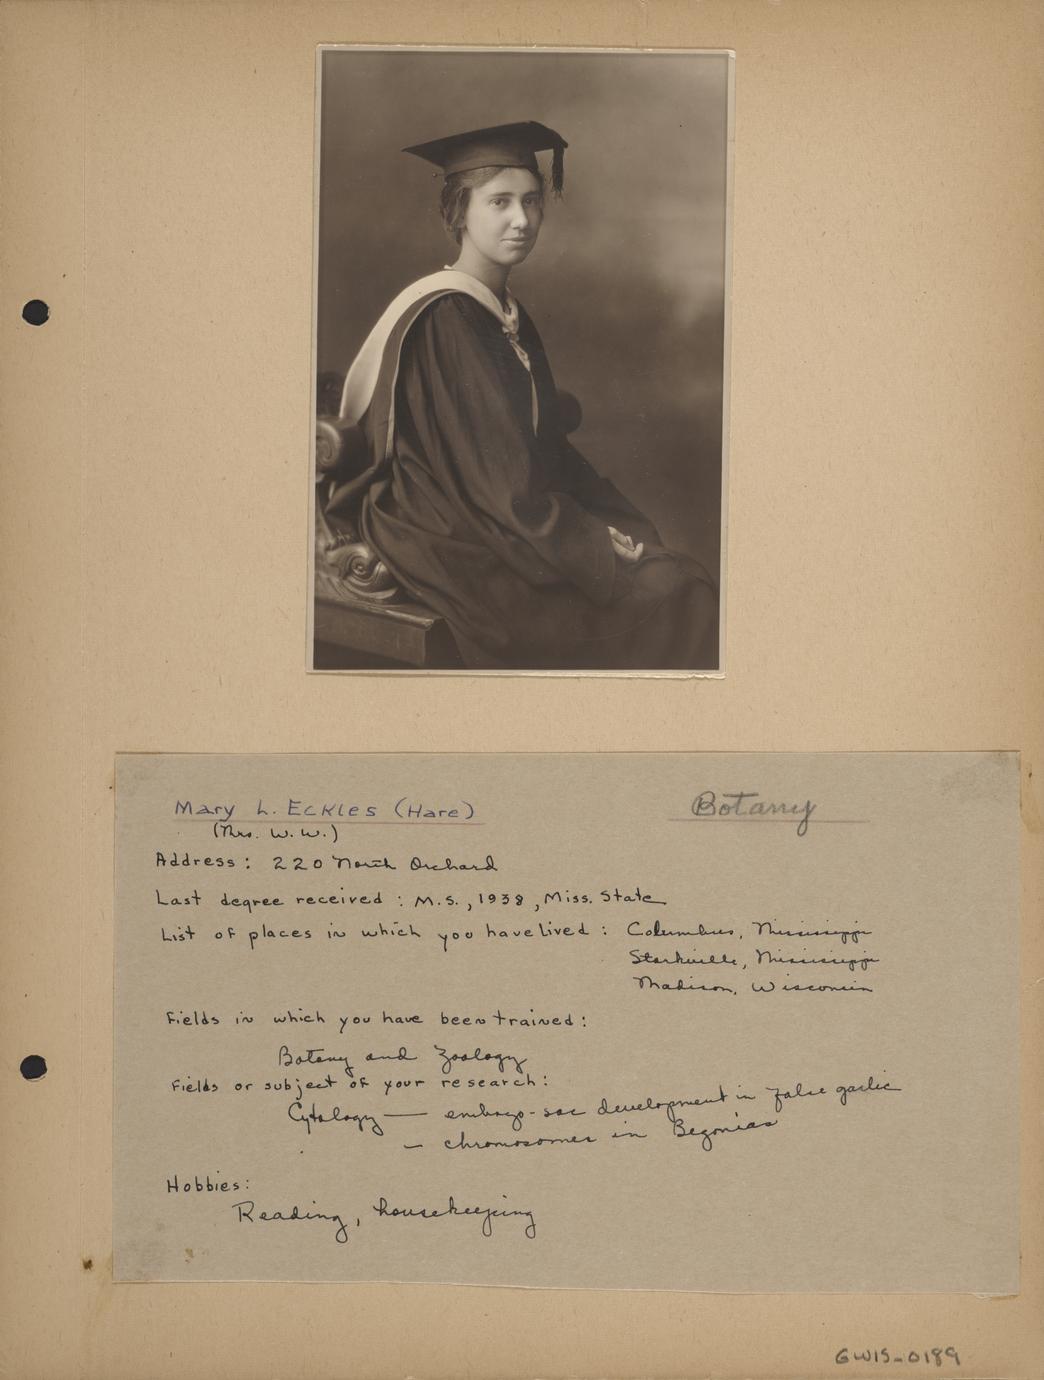 Mary L. Eckles (Hare)
Botany
(Mrs. W. W.)
Address: 220 North Orchard
Last degree received: M.S., 1938, Miss. State
List of places in which you have lived: Columbus, Mississippi
Starkville, Mississippi
Madison, Wisconsin
Fields in which you have been trained:
Botany and Zoology
Fields or subject of your research:
Cytology — embryo-sac development in false garlic
— chromosomes in Begonias
Hobbies:
Reading, housekeeping
GWIS-0189